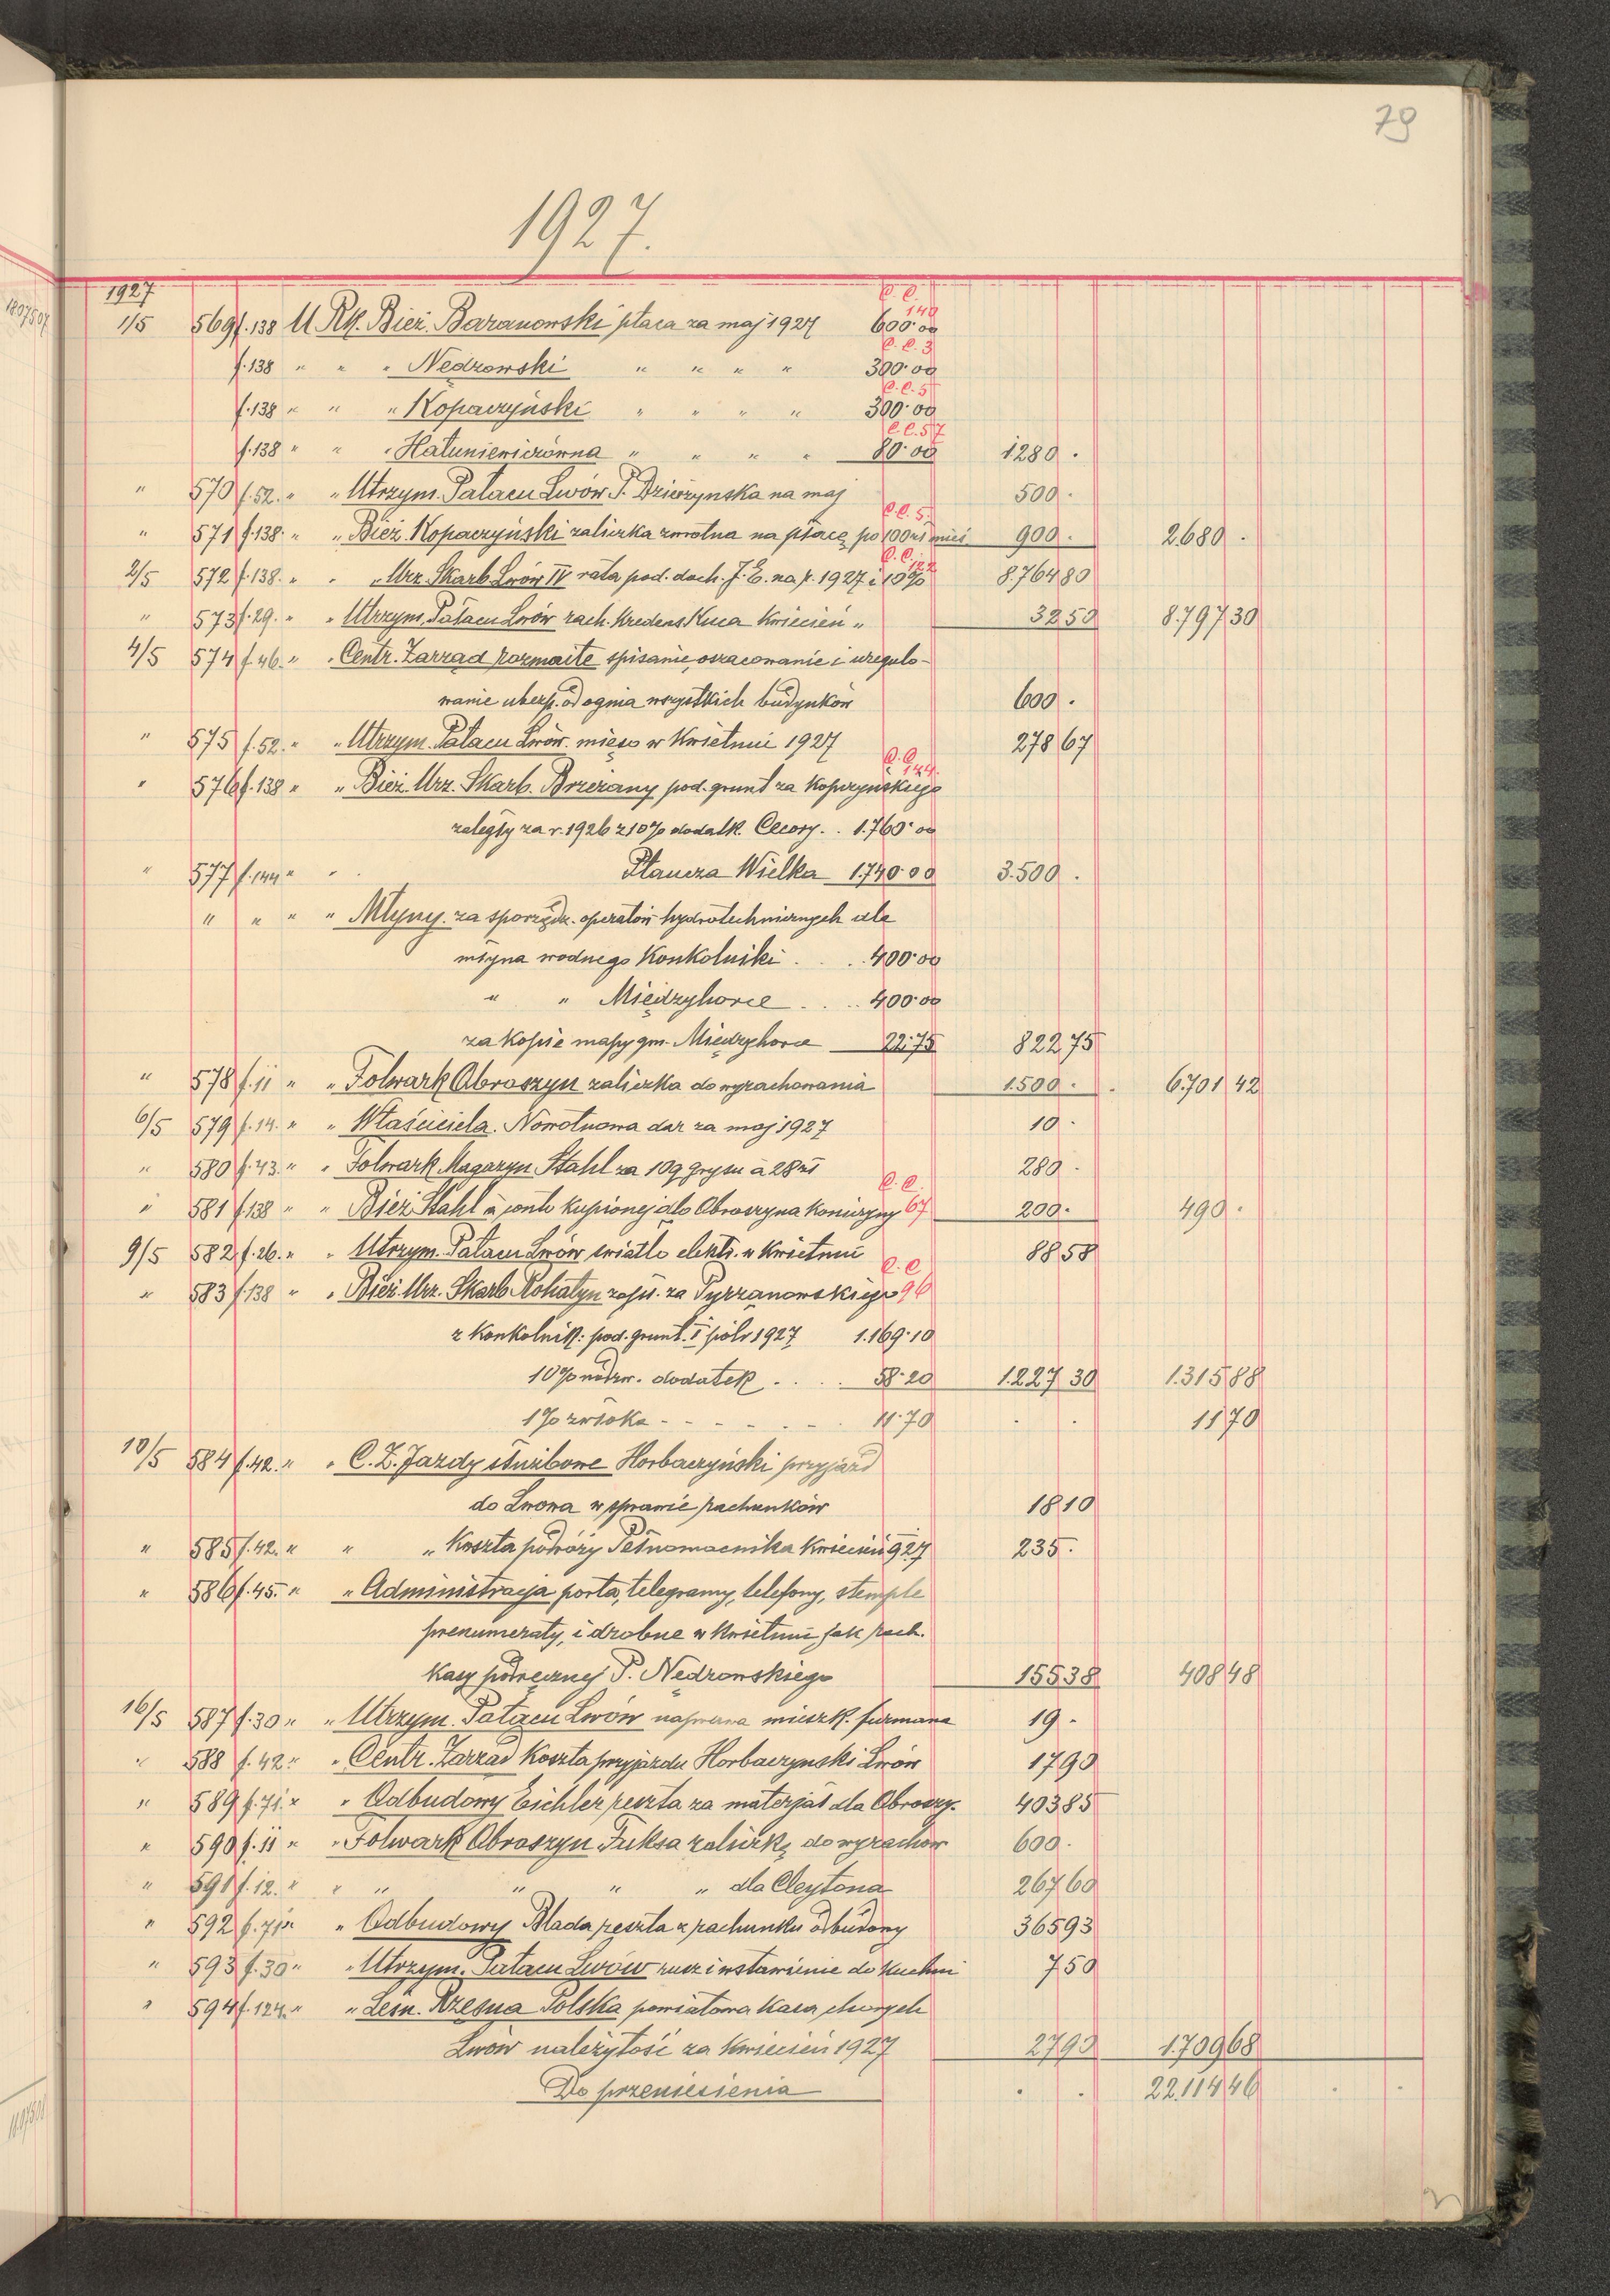 79
1927.
1927
C. C. 140
1/5 569 f. 138 U Rk. Bież. Baranowski płaca za maj 1927 600·00
C. C. 3
f. 138 " " " Nedzowski " " " " 300·00
C. C. 5
f. 138 " " " Kopaczyński " " " " 300·00
C. C. 57
f. 138 " " " Hatuniewiczówna " " " " 80·00 1280 .
" 570 f. 52. " " Utrzym. Pałacu Lwów P. Dzierzynska na maj 500 .
C. C. 5.
" 571 f. 138. " " Bież. Kopaczyński zaliczka zwrotna na płacę po 100 zł mieś. 900 . 2680 .
C. C. 122
2/5 572 f. 138. " " " Urz. Skarb. Lwów IV rata pod. doch. J. E. na r. 1927 i 10% 8.764 80
" 573 f. 29. " " Utrzym. Pałacu Lwów rach. Kredens Kuca Kwiecień " 32 50 8.797 30
4/5 574 f. 46. " " Centr. Zarząd rozmaite spisanie, oszacowanie i uregulo-
wanie ubezp. od ognia wszystkich budynków 600 .
" 575 f. 52. " " Utrzym. Pałacu Lwów. mięso w Kwietniu 1927 278 67
C. C. 144.
" 576 f. 138 " " Bież. Urz. Skarb. Brzeżany pod. grunt za Kopczyńskiego
zaległy za r. 1926 z 10% dodatk. Cecory . . 1.760·00
" 577 f. 144 " " Płaucza Wielka 1.740·00 3.500 .
" " " " Młyny. za sporządz. operatów hydrotechnicznych dla
młyna wodnego Konkolniki . . . 400·00
" " Międzyhorce . . . 400·00
za kopie mapy gm. Międzyhorce 22·75 822 75
" 578 f. 11 " " Folwark Obroszyn zaliczka do wyrachowania 1.500 . . 6.701 42
6/5 579 f. 14. " " Właściciela. Nowotnowa dar za maj 1927 10 .
" 580 f. 43. " " Folwark Magazyn Stahl za 10 q grysu à 28 zł 280 .
C. C. 67
" 581 f. 138 " " Bież Stahl à conto kupionej dlo Obroszyna koniczyny 200 . 490 .
9/5 582 f. 26. " " Utrzym. Pałacu Lwów światło elektr. w Kwietniu 88 58
C. C 96
" 583 f. 138 " " Bież. Urz. Skarb Rohatyn zapł. za Pyrzanowskiego
z Konkolnik: pod. grunt. I półr 1927 1.169·10
10% nadzw. dodatek . . . . 58·20 1.227 30 1.315 88
1% zwłoka - - - - - - 11·70 . . 11 70
10/5 584 f. 42. " " C. Z. Jazdy służbowe Horbaczyński przyjazd
do Lwowa w sprawie rachunków 18 10
" 585 f. 42. " " " Koszta podróży Pełnomocnika Kwiecień 927 235 .
" 586 f. 45. " " Administracja porta, telegramy, telefony, stemple
prenumeraty, i drobne w Kwietniu jak rach.
Kasy podręcznej P. Nedzowskiego 155 38 408 48
16/5 587 f. 30 " " Utrzym. Pałacu Lwów naprawa mieszk. furmana 19 -
" 588 f. 42 " " Centr. Zarząd Koszta przyjazdu Horbaczynski Lwów 17 90
" 589 f. 71. " " Odbudowy Eichler reszta za materjał dla Obroszy. 403 85
" 590 f. 11 " " Folwark Obroszyn Fuksa zaliczkę do wyrachow 600 .
" 591 f. 12. " " " " " " dla Cleytona 267 60
" 592 f. 71 " " Odbudowy Blada reszta z rachunku odbudowy 365 93
" 593 f. 30 " " Utrzym. Pałacu Lwów rusz i wstawienie do kuchni 7 50
" 594 f. 124. " " Leśn. Rzęsna Polska powiatowa Kasa chorych
Lwów należytość za Kwiecień 1927 27 90 1.709 68
Do przeniesienia . . 22.114 46 . .